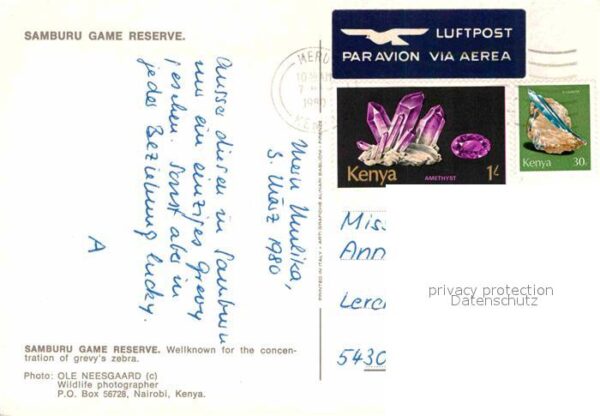 SAMBURU GAME RESERVE.
Ausser diesen in Samburu
nur ein einziges Grevy
gesehen. Sonst aber in
jeder Beziehung lucky.
A
Meru Mulika,
3. März 1980
SAMBURU GAME RESERVE. Wellknown for the concen-
tration of grevy's zebra.
Photo: OLE NEESGAARD (c)
Wildlife photographer
P.O. Box 56728, Nairobi, Kenya.
PRINTED IN ITALY - ARTI GRAFICHE ALINARI BAGLIONI - FIRENZE
LUFTPOST
PAR AVION VIA AEREA
MERU
1980
Kenya
AMETHYST
1/-
Kenya
30c
Miss
Ann
Lerc
5430
privacy protection
Datenschutz